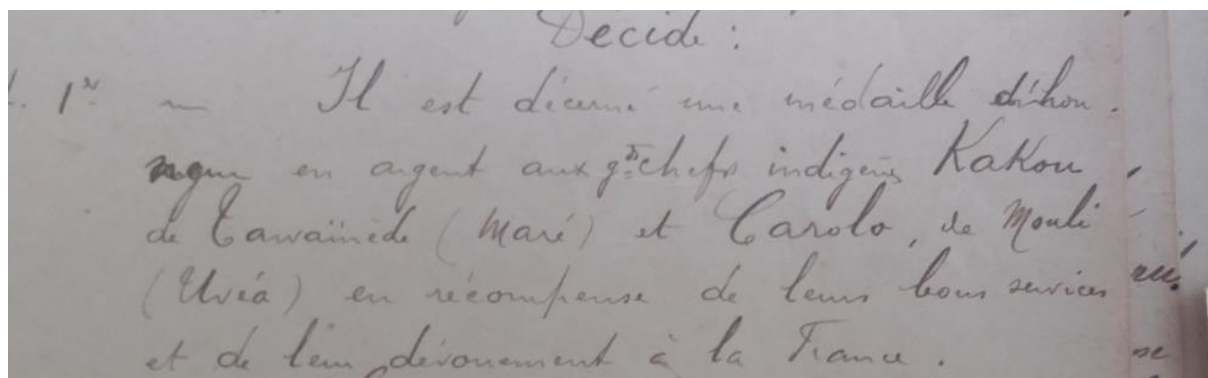 Décide :
. 1er ~ Il est décerné une médaille d'hon-
neur en argent aux gds chefs indigènes Kakou,
de Tawaïnède (Maré) et Carolo, de Mouli
(Uvéa) en récompense de leurs bons services
et de leur dévouement à la France.